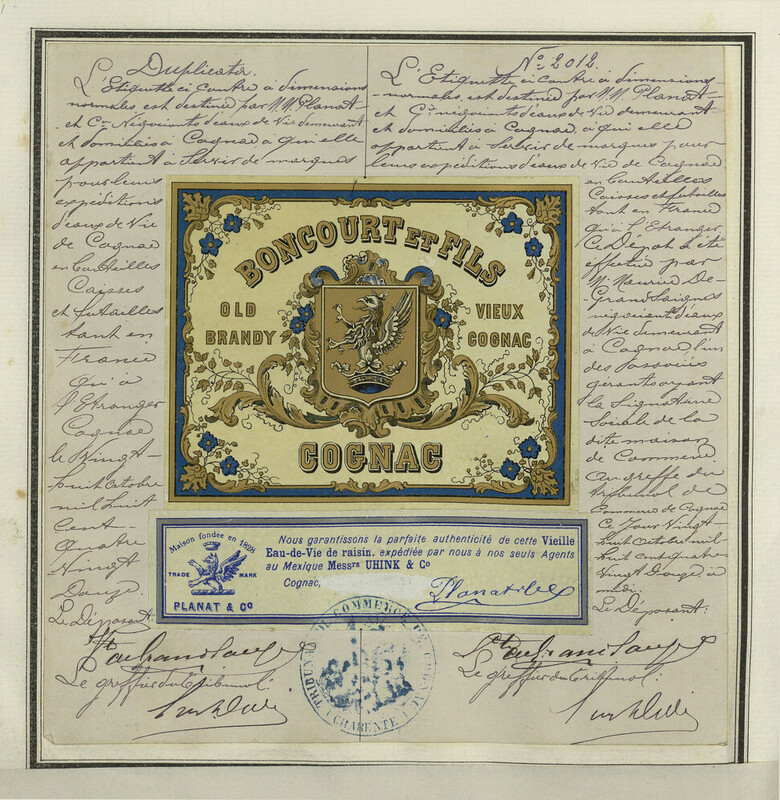 Duplicata.
L'Etiquette ci contre à dimensions
normales est destinée par M.M. Planat
et Cie Négociants d'eaux de Vie demeurant
et domiciliés à Cognac à qui elle
appartient à Servir de marques
pour leurs
expéditions
d'eaux de Vie
de Cognac
en bouteilles
Caisses
et futailles
tant en
France
qu'à
l'Etranger
Cognac
le Vingt-
huit octobre
mil huit
Cent-
Quatre
Vingt
Douze.
Le Déposant:
Le greffier du Tribunal:
No. 2012.
L'Etiquette ci contre à dimensions
normales est destinée par M.M. Planat
et Cie négociants d'eaux de Vie demeurant
et domiciliés à Cognac, à qui elle
appartient à Servir de marques pour
leurs expéditions d'eaux de Vie de Cognac
en bouteilles
Caisses et futailles
tant en France
qu'à l'Etranger.
Ce Dépôt a été
effectué par
M. Maurice De-
Grandsaignes
négociant d'eaux
de Vie demeurant
à Cognac, l'un
des associés
gérants ayant
la Signature
Sociale de la
dite maison
de Commerce
au greffe du
tribunal de
Commerce de Cognac
Ce Jour Vingt-
huit octobre mil
huit cent quatre
Vingt Douze à
midi.
Le Déposant:
Le greffier du tribunal:
BONCOURT ET FILS
OLD
BRANDY
VIEUX
COGNAC
COGNAC
Maison fondée en 1828
TRADE MARK
PLANAT & Co
Nous garantissons la parfaite authenticité de cette Vieille
Eau-de-Vie de raisin, expédiée par nous à nos seuls Agents
au Mexique Messrs UHINK & Co
Cognac,
Planat & Co
TRIBUNAL DE COMMERCE DE COGNAC
(CHARENTE)